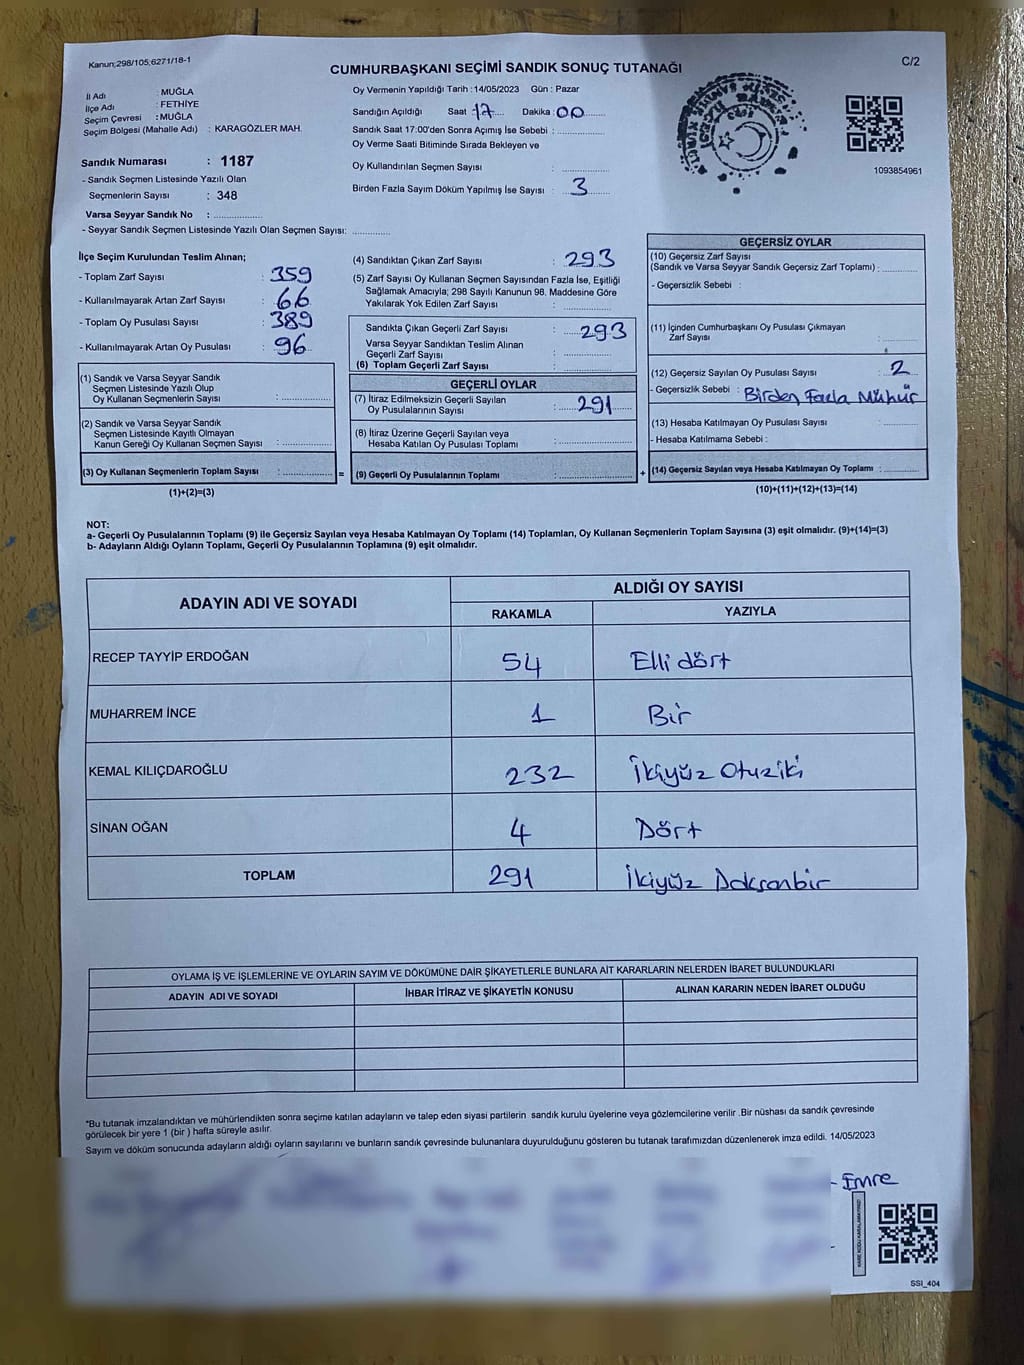 Kanun;298/105;6271/18-1
C/2
CUMHURBAŞKANI SEÇİMİ SANDIK SONUÇ TUTANAĞI
İl Adı : MUĞLA
İlçe Adı : FETHİYE
Seçim Çevresi : MUĞLA
Seçim Bölgesi (Mahalle Adı) : KARAGÖZLER MAH.
Sandık Numarası : 1187
- Sandık Seçmen Listesinde Yazılı Olan
Seçmenlerin Sayısı : 348
Varsa Seyyar Sandık No :
- Seyyar Sandık Seçmen Listesinde Yazılı Olan Seçmen Sayısı:
Oy Vermenin Yapıldığı Tarih : 14/05/2023 Gün : Pazar
Sandığın Açıldığı Saat 17 Dakika : 00
Sandık Saat 17:00'den Sonra Açımış İse Sebebi :
Oy Verme Saati Bitiminde Sırada Bekleyen ve
Oy Kullandırılan Seçmen Sayısı :
Birden Fazla Sayım Döküm Yapılmış İse Sayısı : 3
1093854961
İlçe Seçim Kurulundan Teslim Alınan;
- Toplam Zarf Sayısı : 359
- Kullanılmayarak Artan Zarf Sayısı : 66
- Toplam Oy Pusulası Sayısı : 389
- Kullanılmayarak Artan Oy Pusulası : 96
(1) Sandık ve Varsa Seyyar Sandık
Seçmen Listesinde Yazılı Olup
Oy Kullanan Seçmenlerin Sayısı :
(2) Sandık ve Varsa Seyyar Sandık
Seçmen Listesinde Kayıtlı Olmayan
Kanun Gereği Oy Kullanan Seçmen Sayısı :
(3) Oy Kullanan Seçmenlerin Toplam Sayısı : =
(1)+(2)=(3)
(4) Sandıktan Çıkan Zarf Sayısı : 293
(5) Zarf Sayısı Oy Kullanan Seçmen Sayısından Fazla İse, Eşitliği
Sağlamak Amacıyla; 298 Sayılı Kanunun 98. Maddesine Göre
Yakılarak Yok Edilen Zarf Sayısı :
Sandıkta Çıkan Geçerli Zarf Sayısı : 293
Varsa Seyyar Sandıktan Teslim Alınan
Geçerli Zarf Sayısı :
(6) Toplam Geçerli Zarf Sayısı :
GEÇERLİ OYLAR
(7) İtiraz Edilmeksizin Geçerli Sayılan
Oy Pusulalarının Sayısı : 291
(8) İtiraz Üzerine Geçerli Sayılan veya
Hesaba Katılan Oy Pusulası Toplamı :
(9) Geçerli Oy Pusulalarının Toplamı : +
GEÇERSİZ OYLAR
(10) Geçersiz Zarf Sayısı
(Sandık ve Varsa Seyyar Sandık Geçersiz Zarf Toplamı) :
- Geçersizlik Sebebi :
(11) İçinden Cumhurbaşkanı Oy Pusulası Çıkmayan
Zarf Sayısı :
(12) Geçersiz Sayılan Oy Pusulası Sayısı : 2
- Geçersizlik Sebebi : Birden Fazla Mühür
(13) Hesaba Katılmayan Oy Pusulası Sayısı :
- Hesaba Katılmama Sebebi :
(14) Geçersiz Sayılan veya Hesaba Katılmayan Oy Toplamı :
(10)+(11)+(12)+(13)=(14)
NOT:
a- Geçerli Oy Pusulalarının Toplamı (9) ile Geçersiz Sayılan veya Hesaba Katılmayan Oy Toplamı (14) Toplamları, Oy Kullanan Seçmenlerin Toplam Sayısına (3) eşit olmalıdır. (9)+(14)=(3)
b- Adayların Aldığı Oyların Toplamı, Geçerli Oy Pusulalarının Toplamına (9) eşit olmalıdır.
ADAYIN ADI VE SOYADI ALDIĞI OY SAYISI
RAKAMLA YAZIYLA
RECEP TAYYİP ERDOĞAN 54 Elli dört
MUHARREM İNCE 1 Bir
KEMAL KILIÇDAROĞLU 232 İkiyüz Otuziki
SİNAN OĞAN 4 Dört
TOPLAM 291 İkiyüz Doksanbir
OYLAMA İŞ VE İŞLEMLERİNE VE OYLARIN SAYIM VE DÖKÜMÜNE DAİR ŞİKAYETLERLE BUNLARA AİT KARARLARIN NELERDEN İBARET BULUNDUKLARI
ADAYIN ADI VE SOYADI İHBAR İTİRAZ VE ŞİKAYETİN KONUSU ALINAN KARARIN NEDEN İBARET OLDUĞU
*Bu tutanak imzalandıktan ve mühürlendikten sonra seçime katılan adayların ve talep eden siyasi partilerin sandık kurulu üyelerine veya gözlemcilerine verilir .Bir nüshası da sandık çevresinde
görülecek bir yere 1 (bir ) hafta süreyle asılır.
Sayım ve döküm sonucunda adayların aldığı oyların sayılarını ve bunların sandık çevresinde bulunanlara duyurulduğunu gösteren bu tutanak tarafımızdan düzenlenerek imza edildi. 14/05/2023
- Emre
KARE KODU KARALAMAYINIZ!
SSİ_404